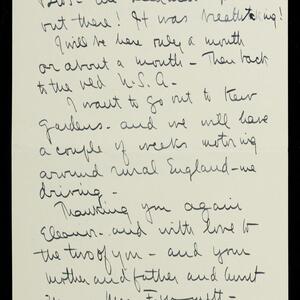 out there! It was breathtaking!
I will be here only a month
or about a month - Then back
to the old U.S.A.
I want to go out to Kew
Gardens - and we will have
a couple of weeks motoring
around rural England - me
driving -
Thanking you again
Eleanor - and with love to
the two of you - and your
mother and father and Aunt